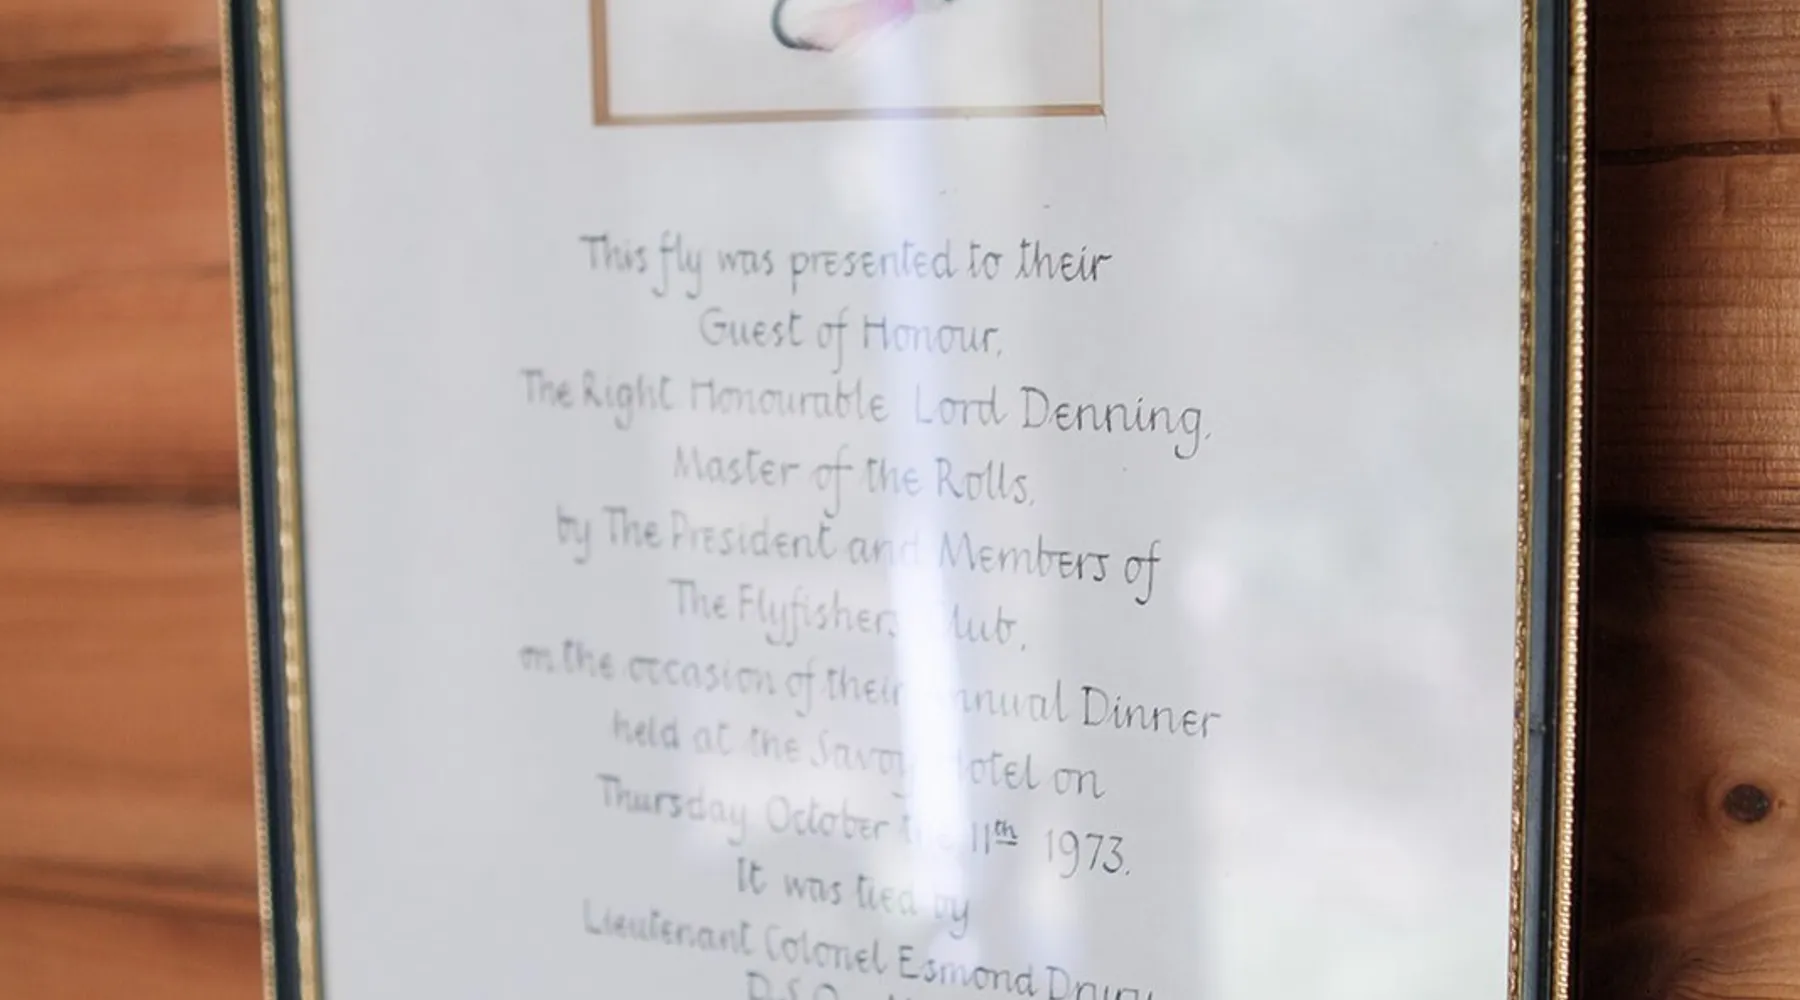 This fly was presented to their
Guest of Honour,
The Right Honourable Lord Denning,
Master of the Rolls,
by The President and Members of
The Flyfishers Club,
on the occasion of their Annual Dinner
held at the Savoy Hotel on
Thursday October the 11th 1973.
It was tied by
Lieutenant Colonel Esmond Drury
D.S.O.